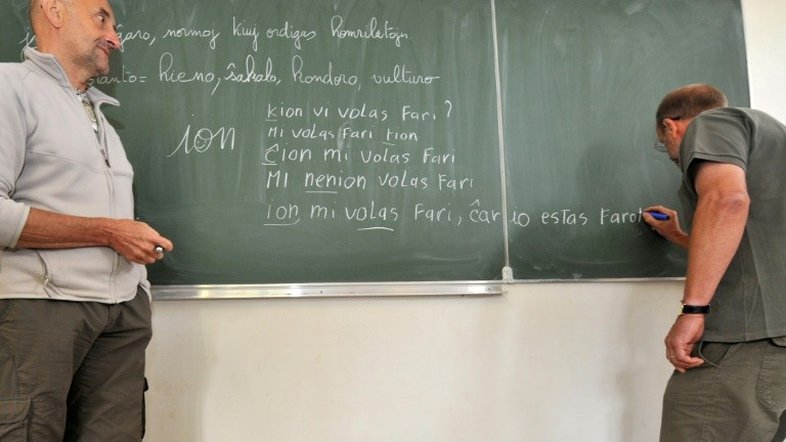 normoj kiuj ordigas homrilatojn
= hieno, ŝakalo, kondoro, vulturo
ion
kion vi volas fari?
Mi volas fari tion
Ĉion mi volas fari
Mi nenion volas fari
ion mi volas fari, ĉar io estas